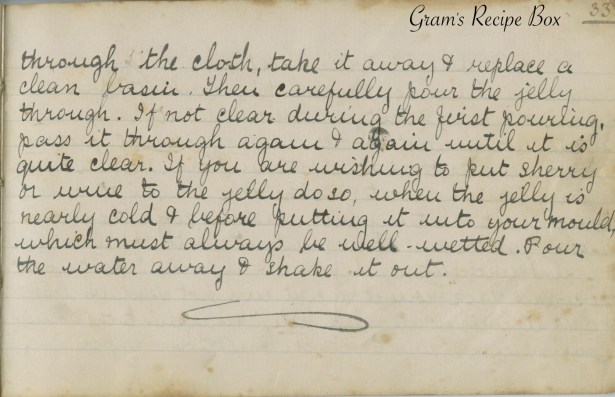 Gram's Recipe Box
33
through the cloth, take it away & replace a
clean basin. Then carefully pour the jelly
through. If not clear during the first pouring,
pass it through again & again until it is
quite clear. If you are wishing to put sherry
or wine to the jelly do so, when the jelly is
nearly cold & before putting it into your mould,
which must always be well-wetted. Pour
the water away & shake it out.